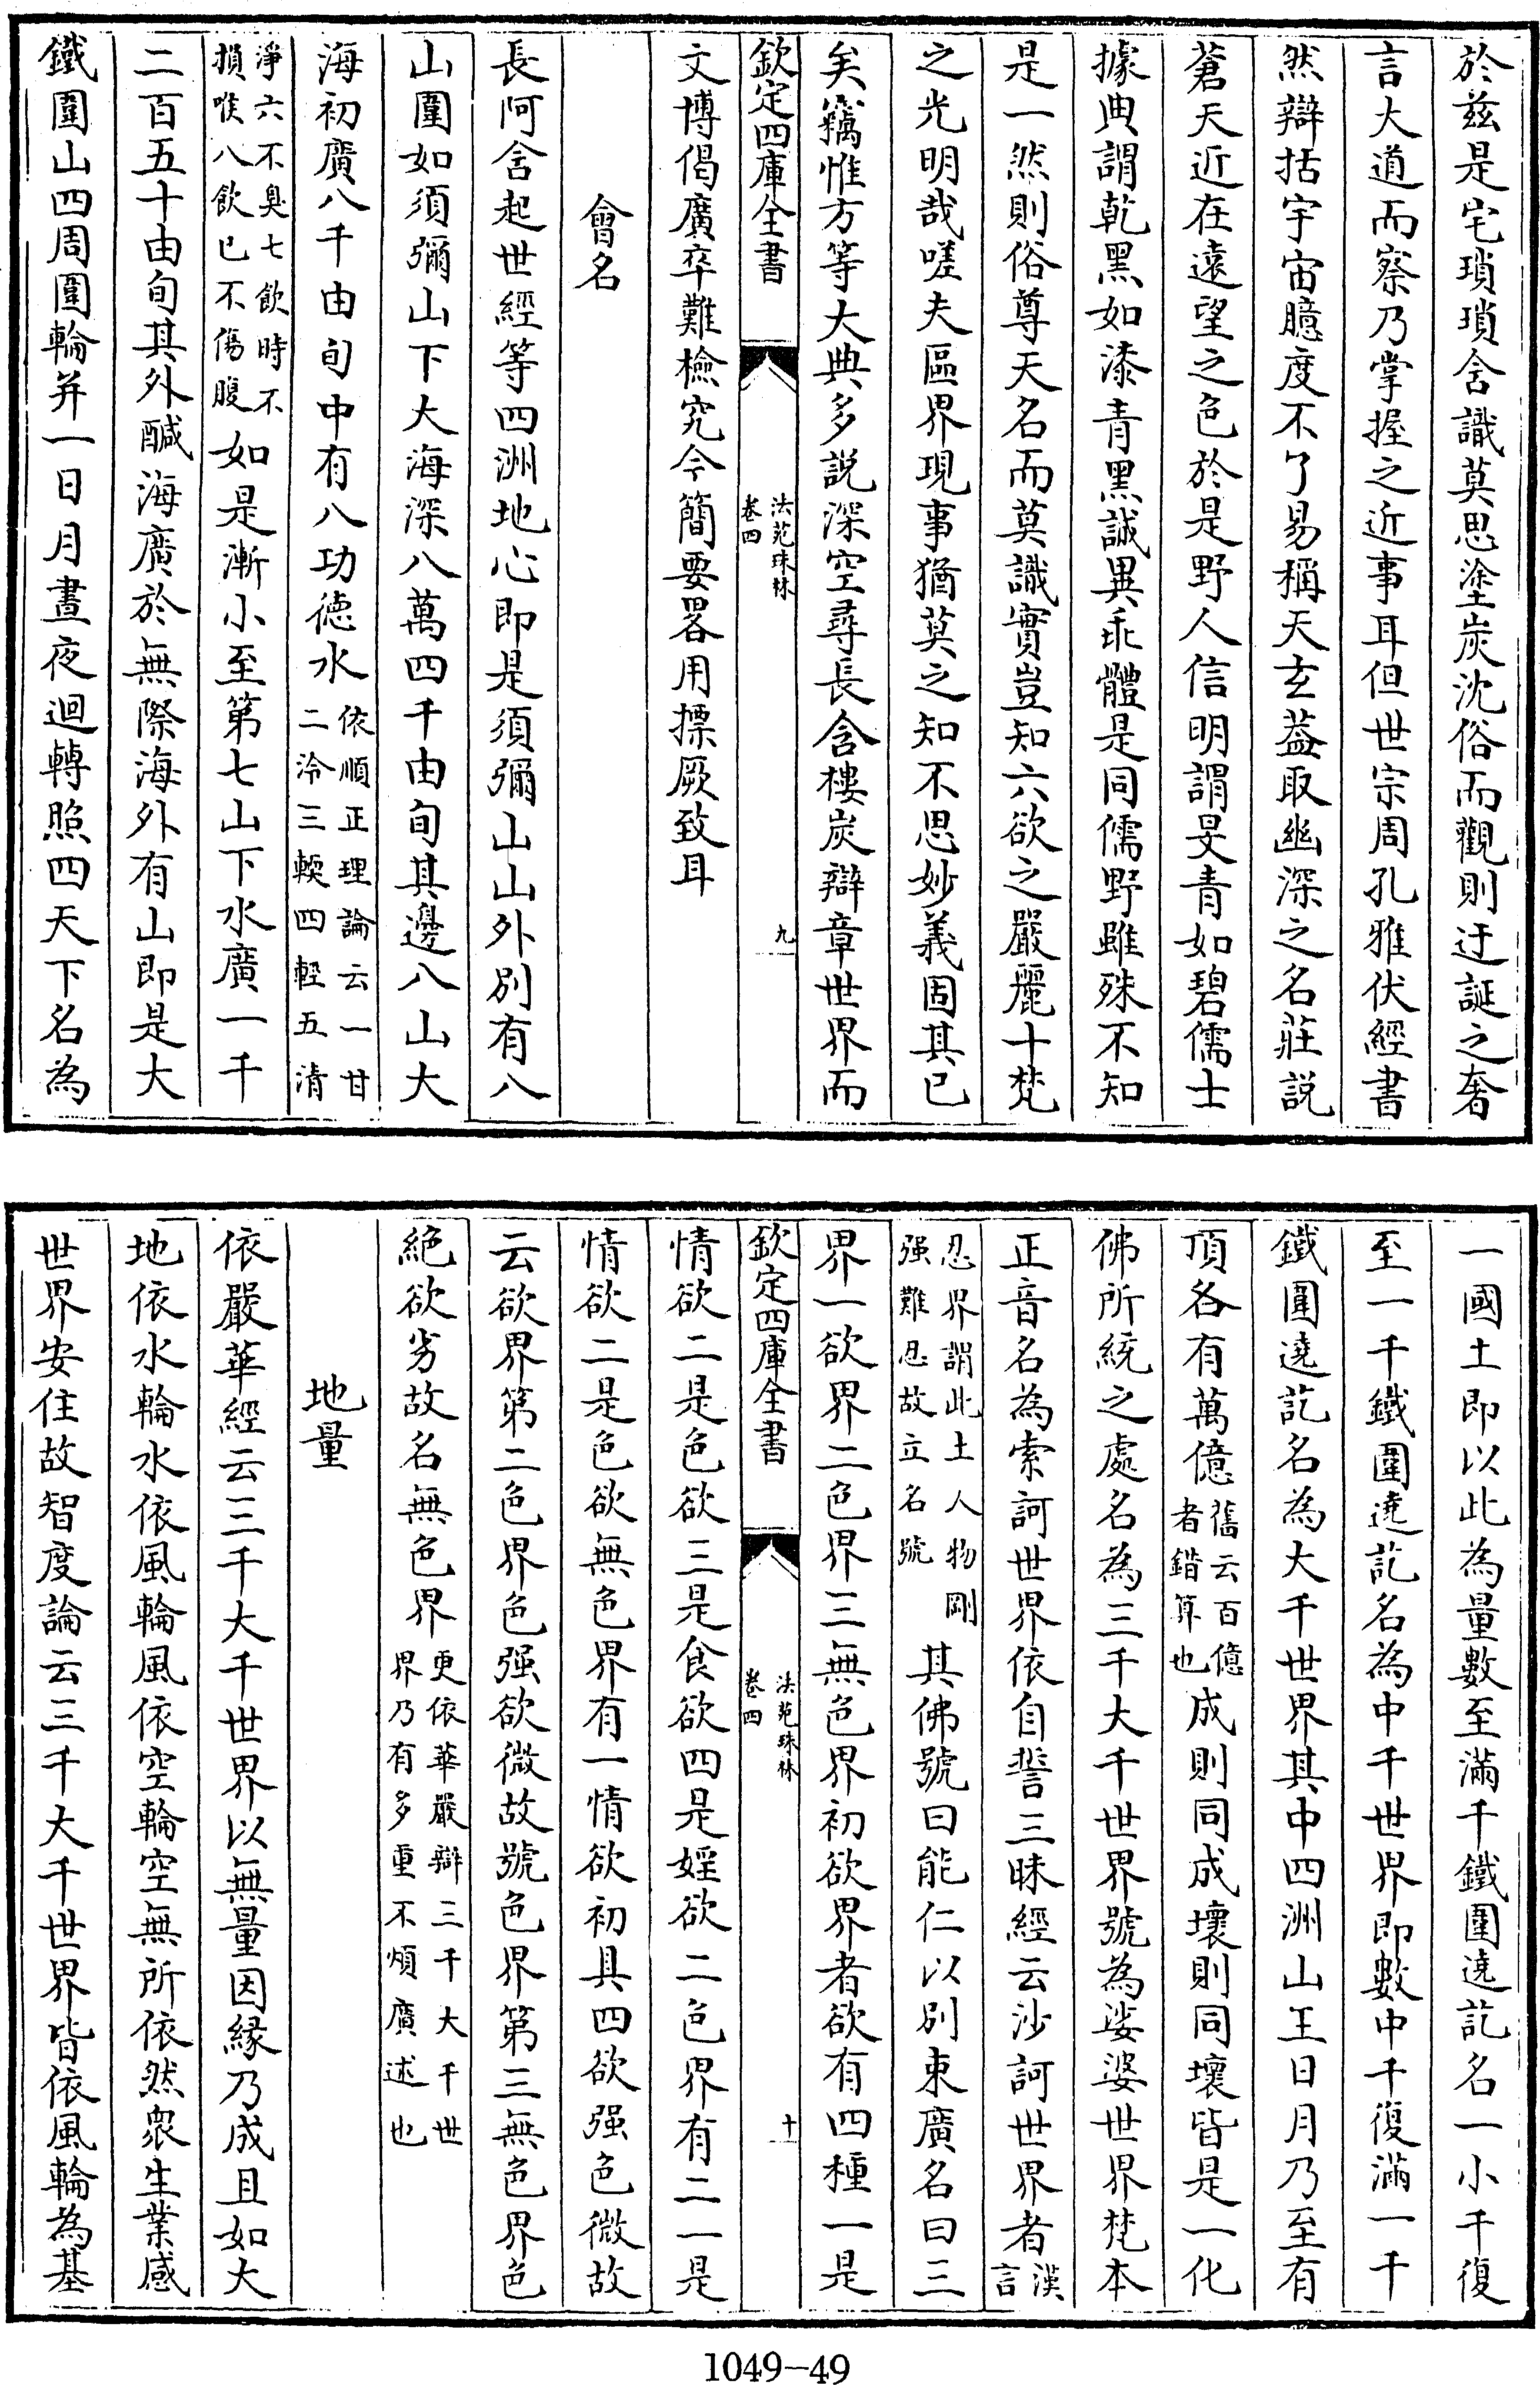 於兹是宅瑣瑣含識莫思塗炭沈俗而觀則迂誕之奢
言大道而察乃掌握之近事耳但世宗周孔雅伏經書
然辯括宇宙臆度不了易稱天玄葢取幽深之名莊説
蒼天近在遠望之色於是野人信明謂旻青如碧儒士
據典謂乾黑如漆青黑誠異乖體是同儒野雖殊不知
是一然則俗尊天名而莫識實豈知六欲之嚴麗十梵
之光明哉嗟夫區界現事猶莫之知不思妙義固其已
矣竊惟方等大典多説深空尋長含樓炭辯章世界而
欽定四庫全書
法苑珠林
卷四
九
文博偈廣卒難檢究今簡要畧用摽厥致耳
會名
長阿含起世經等四洲地心即是須彌山山外別有八
山圍如須彌山下大海深八萬四千由旬其邊八山大
海初廣八千由旬中有八功德水
依順正理論云一甘
二冷三輭四輕五清
淨六不臭七飲時不
損喉八飲已不傷腹
如是漸小至第七山下水廣一千
二百五十由旬其外醎海廣於無際海外有山即是大
鐵圍山四周圍輪并一日月晝夜迴轉照四天下名為
一國土即以此為量數至滿千鐵圍遶訖名一小千復
至一千鐵圍遶訖名為中千世界即數中千復滿一千
鐵圍遶訖名為大千世界其中四洲山王日月乃至有
頂各有萬億
舊云百億
者錯算也
成則同成壞則同壞皆是一化
佛所統之處名為三千大千世界號為娑婆世界梵本
正音名為索訶世界依自誓三昧經云沙訶世界者
漢
言
忍界謂此土人物剛
强難忍故立名號
其佛號曰能仁以別東廣名曰三
界一欲界二色界三無色界初欲界者欲有四種一是
欽定四庫全書
法苑珠林
卷四
十
情欲二是色欲三是食欲四是婬欲二色界有二一是
情欲二是色欲無色界有一情欲初具四欲强色微故
云欲界第二色界色强欲微故號色界第三無色界色
絕欲劣故名無色界
更依華嚴辯三千大千世
界乃有多重不煩廣述也
地量
依嚴華經云三千大千世界以無量因緣乃成且如大
地依水輪水依風輪風依空輪空無所依然衆生業感
世界安住故智度論云三千大千世界皆依風輪為基
1049-49